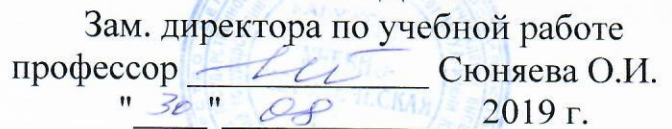 Зам. директора по учебной работе
профессор Сюняева О.И.
"30" 08 2019 г.